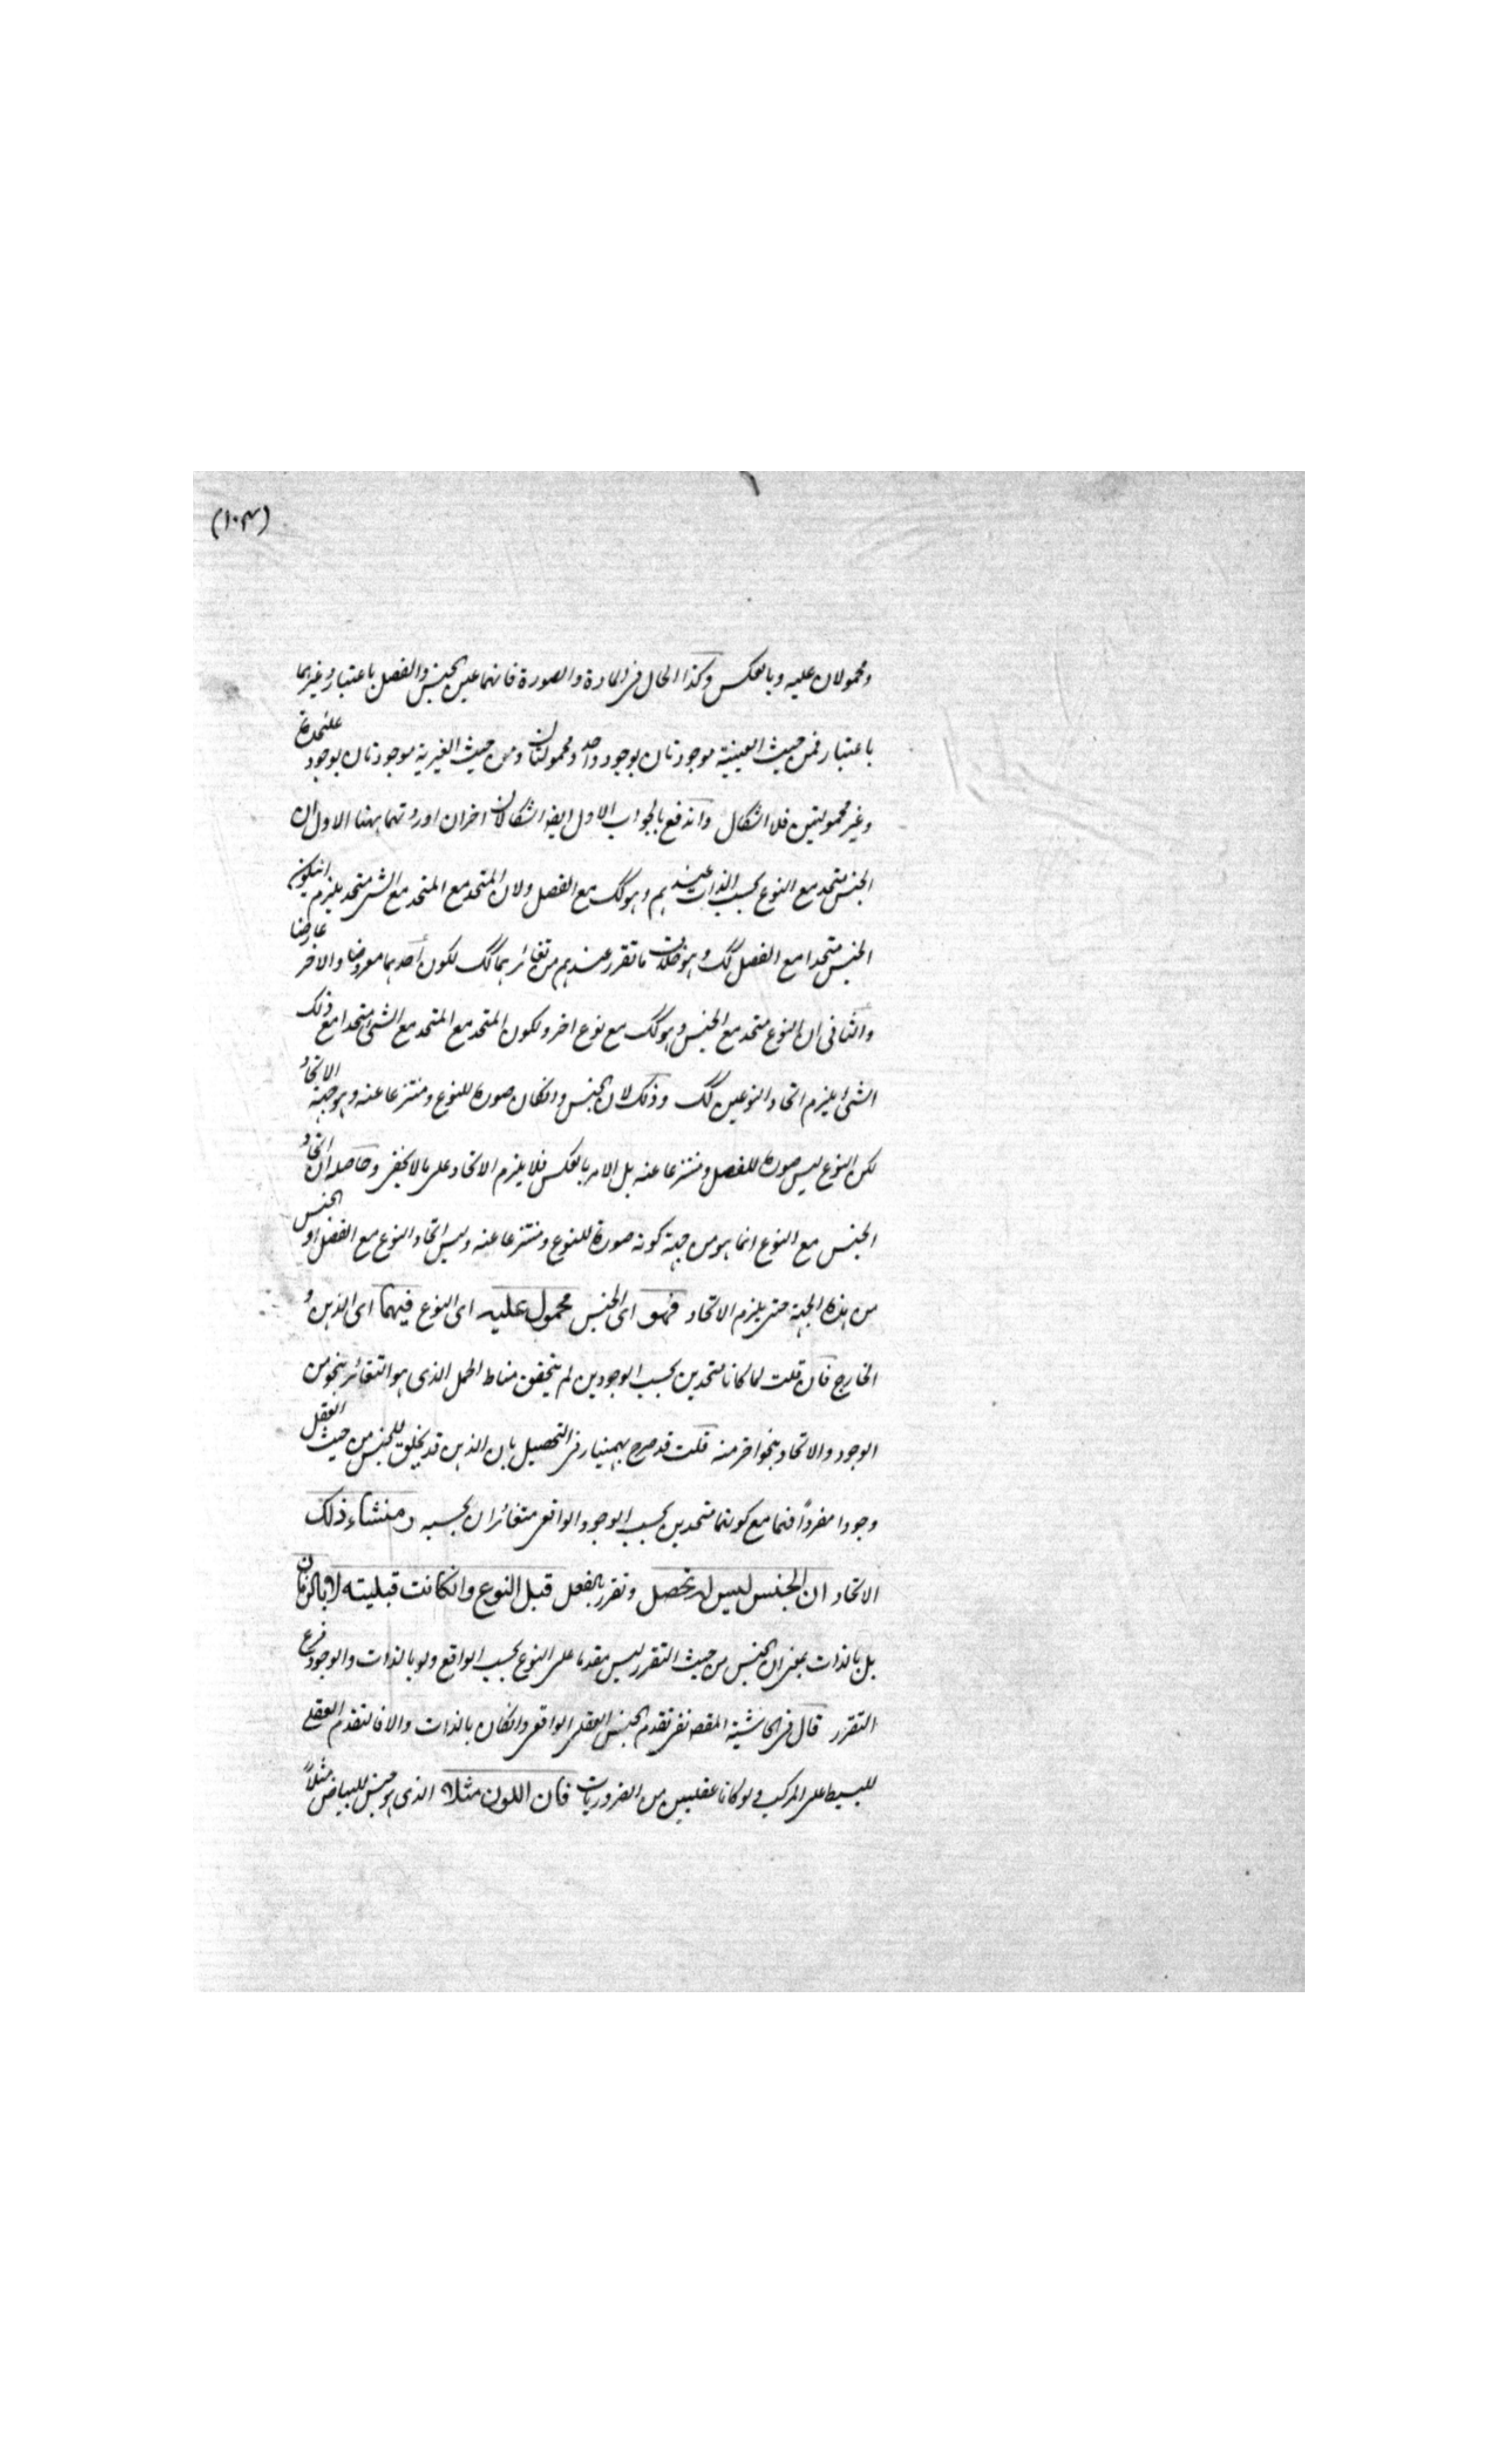 (١٠٣)
ومحمولان عليه وبالعكس وكذا الحال فى المادة والصورة فانهما عين الجنس والفصل باعتبار وغيرهما
باعتبار فمن حيث العينية موجودتان بوجود واحد ومحمولتان ومن حيث الغيرية موجودتان بوجود عليحدة
وغير محمولتين فلا اشكال واندفع بالجواب الاول ايضا اشكالان اخران اوردتهما ههنا الاول ان
الجنس متحد مع النوع بحسب الذات عندهم وهو كك مع الفصل ولان المتحد مع المتحد مع الشئ متحد يلزم انيكون
الجنس متحدا مع الفصل كك وهو خلاف ما تقرر عندهم من تغائرهما كك لكون أحدهما معروضا والاخر عارضا
والثانى ان النوع متحد مع الجنس وهو كك مع نوع اخر ولكون المتحد مع المتحد مع الشئ متحدا مع ذلك
الشئ يلزم اتحاد النوعين كك وذلك لان الجنس وانكان صورة للنوع ومنتزعا عنه وهو جهة الاتحاد
لكن النوع ليس صورة للفصل ومنتزعا عنه بل الامر بالعكس فلا يلزم الاتحاد على ما لا يخفى وحاصله ان اتحاد
الجنس مع النوع انما هو من جهة كونه صورة للنوع ومنتزعا عنه وليس اتحاد النوع مع الفصل او الجنس
من هذه الجهة حتى يلزم الاتحاد فهو اى الجنس محمول عليه اى النوع فيهما اى الذهن و
الخارج فان قلت لما كانا متحدين بحسب الوجودين لم يتحقق مناط الحمل الذى هو التغائر بنحو من
الوجود والاتحاد بنحو اخر منه قلت قد صرح بهمنيار فى التحصيل بان الذهن قد يخلق للجنس من حيث العقل
وجودا مفردًا فهما مع كونهما متحدين بحسب الوجود الواقعى متغائران بحسبه ومنشاء ذلك
الاتحاد ان الجنس ليس له تحصل وتقرر بالفعل قبل النوع وانكانت قبليته لا بالزمان
بل بالذات بمعنى ان الجنس من حيث التقرر ليس مقدما على النوع بحسب الواقع ولو بالذات والوجود فرع
التقرر قال فى الحاشية المقصد نفى تقدم الجنس العقلى الواقعى وانكان بالذات والا فالتقدم العقلى
للبسيط على المركب ولو كانا عقليين من الضروريات فان اللون مثلا الذى هو جنس للبياض مثلاً